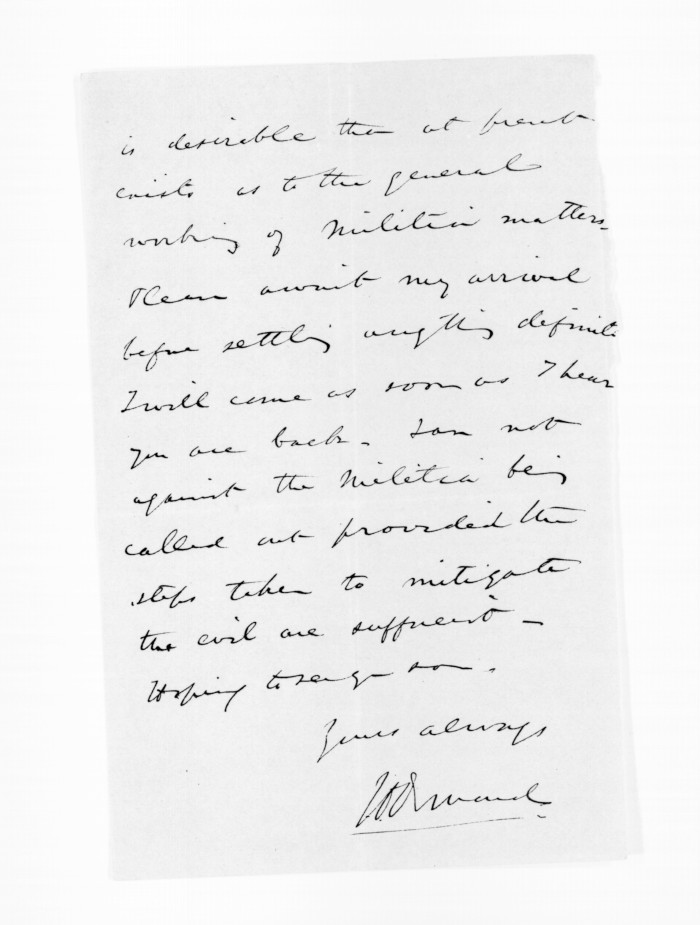 is desirable than at present
exists as to the general
working of Militia matters.
Please await my arrival
before settling anything definite
I will come as soon as I hear
you are back. I am not
against the Militia being
called out provided the
steps taken to mitigate
the evil are sufficient –
Hoping to see you soon.
Yours always